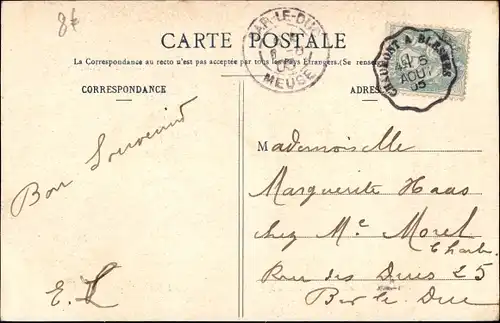 8f
CARTE POSTALE
BAR-LE-DUC
MEUSE
CHAUMONT A BLESMES
5
AOUT
05
La Correspondance au recto n'est pas acceptée par tous les Pays Étrangers. (Se renseigner
CORRESPONDANCE
ADRES
Bon Souvenir
E. L
Mademoiselle
Marguerite Haas
chez Mc Morel
Charb.
Rue des Ducs 25
Bar le Duc